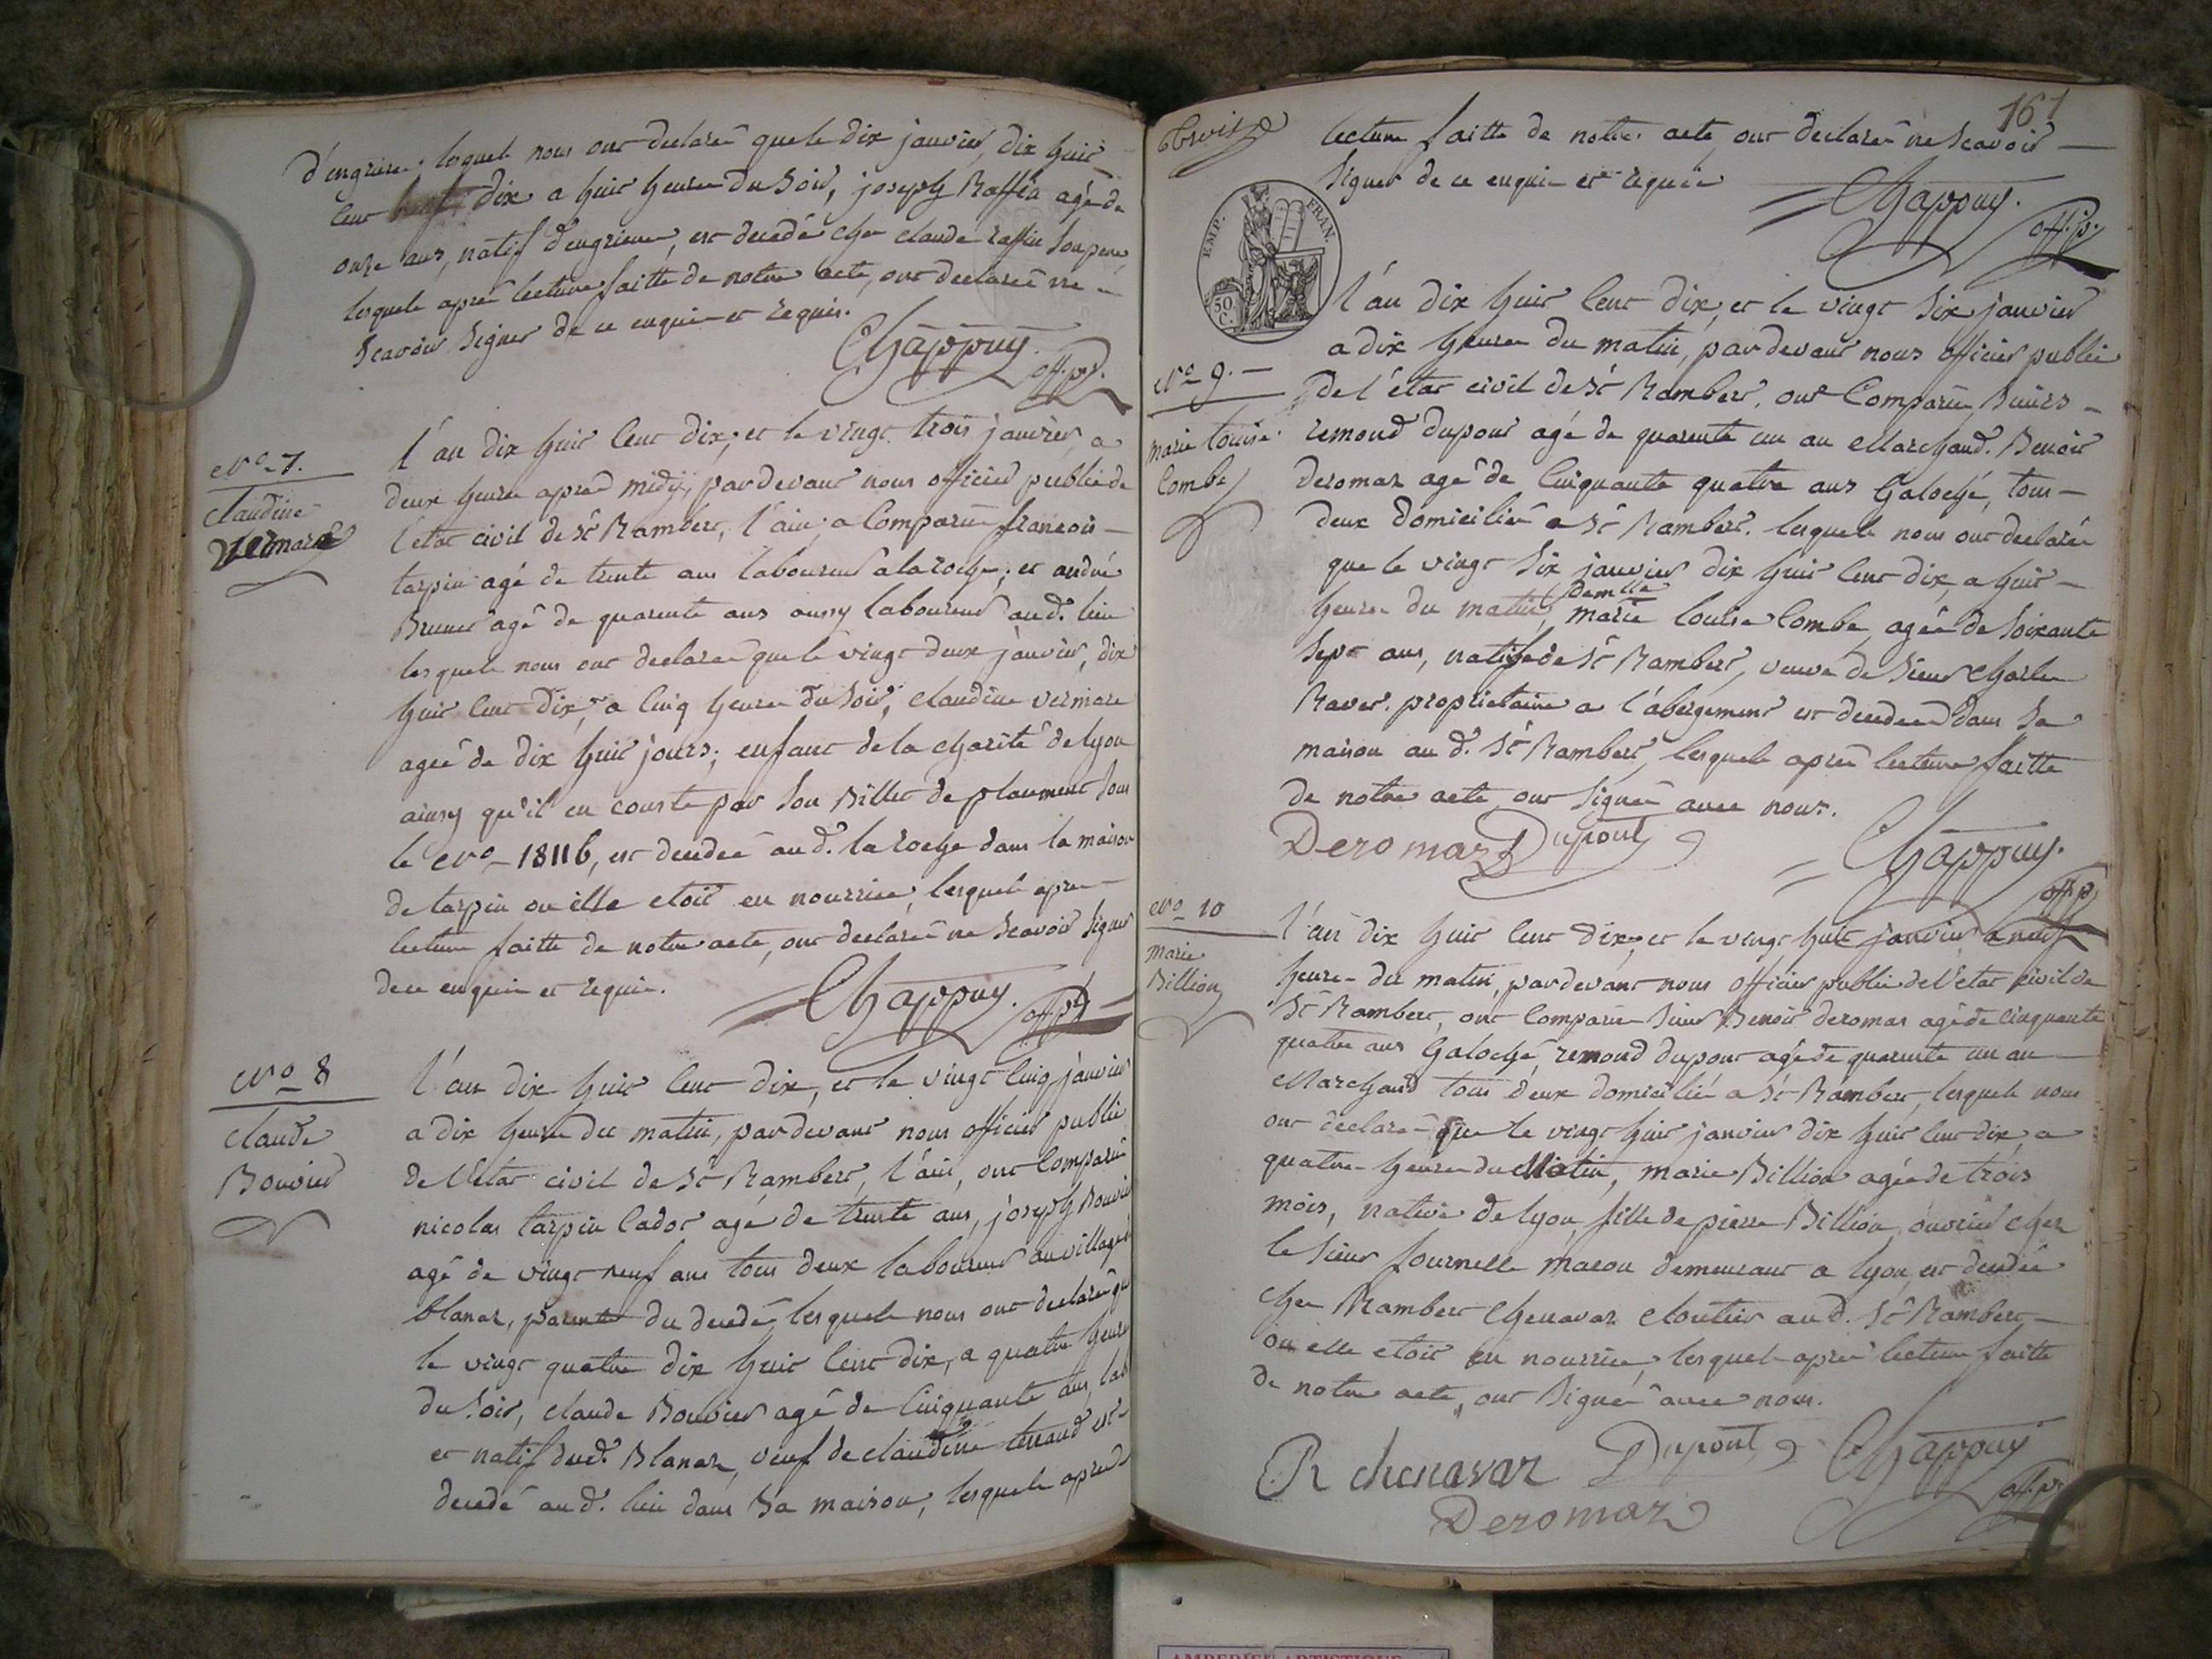 d'engrieres; lesquels nous ont declarés que le dix janvier, dix huit
cent dix a huit heures du soir, joseph Raffin agé de
onze ans, natif d'engrieres, est decedé chez claude raffin son pere,
lesquels après lecture faitte de notre acte, ont declarés ne
scavoir signer de ce enquis et requis.
Chappuy.
off. p.
N.o 7.
claudine
Vermare
L'an dix huit cent dix, et le vingt trois janvier a
deux heures après midÿ, pardevant nous officier public de
l'état civil de St Rambert, l'ain, a comparu francois
tarpin agé de trente ans laboureur a laroche; et andré
Brunet agé de quarente ans aussy laboureur aud. lieu
lesquels nous ont declarés que le vingt deux janvier, dix
huit cent dix, a cinq heures du soir, claudine vermare
agée de dix huit jours; enfant de la charité de lyon
ainsy qu'il en conste par son Billet de placement sous
le N.o 18116, est decedée aud. la roche dans la maison
de tarpin ou elle etoit en nourrice, lesquels après
lecture faitte de notre acte, ont declarés ne scavoir signer
de ce enquis et requis.
Chappuy.
off. p.
N.o 8
claude
Bouvier
L'an dix huit cent dix, et le vingt cinq janvier
a dix heures du matin, pardevant nous officier public
de l'état civil de St Rambert, l'ain, ont comparu
nicolas tarpin cador agé de trente ans, joseph Bouvier
agé de vingt neuf ans tous deux laboureurs au village de
blanaz, parents du decedé, lesquels nous ont declarés que
le vingt quatre dix huit cent dix, a quatre heures
du soir, claude Bouvier agé de cinquante ans, lab
et natif dud. Blanaz, veuf de claudine tenand est
decedé aud. lieu dans sa maison, lesquels après
161
lecture faitte de notre acte ont declarés ne scavoir
signer de ce enquis et requis
Chappuy.
off. p.
EMP. FRAN.
50 C.
L'an dix huit cent dix, et le vingt six janvier
a dix heures du matin, pardevant nous officier public
N.o 9.
marie louise
Combe
de l'état civil de St Rambert, ont comparu sieurs
remond dupont agé de quarente un an Marchand. Benoit
deromaz agé de cinquante quatre ans Galoché, tous
deux domiciliés a St Rambert. lesquels nous ont declarés
que le vingt six janvier dix huit cent dix, a huit
heures du matin, Demlle marie louise Combe, agée de soixante
sept ans, native de St Rambert, veuve de sieur charles
Ravet. proprietaire a l'abergement est decedée dans sa
maison aud. St Rambert, lesquels après lecture faitte
de notre acte ont signés avec nous.
Deromaz Dupont
Chappuy.
off. p.
N.o 10
marie
Billion
L'an dix huit cent dix, et le vingt huit janvier a neuf
heures du matin, pardevant nous officier public de l'état civil de
St Rambert, ont comparu sieur Benoit deromaz agé de cinquante
quatre ans Galoché remond dupont agé de quarente un an
Marchand tous deux domiciliés a St Rambert, lesquels nous
ont declarés que le vingt huit janvier dix huit cent dix, a
quatre heures du Matin, marie Billion agée de trois
mois, native de lyon, fille de pierre Billion, ouvrier chez
le sieur fournelle macon demeurant a lyon, est decedée
chez Rambert Chenavaz cloutier aud. St Rambert,
ou elle etoit en nourrice, lesquels après lecture faitte
de notre acte, ont signés avec nous.
R chenavaz Dupont Chappuy
Deromaz off. p.